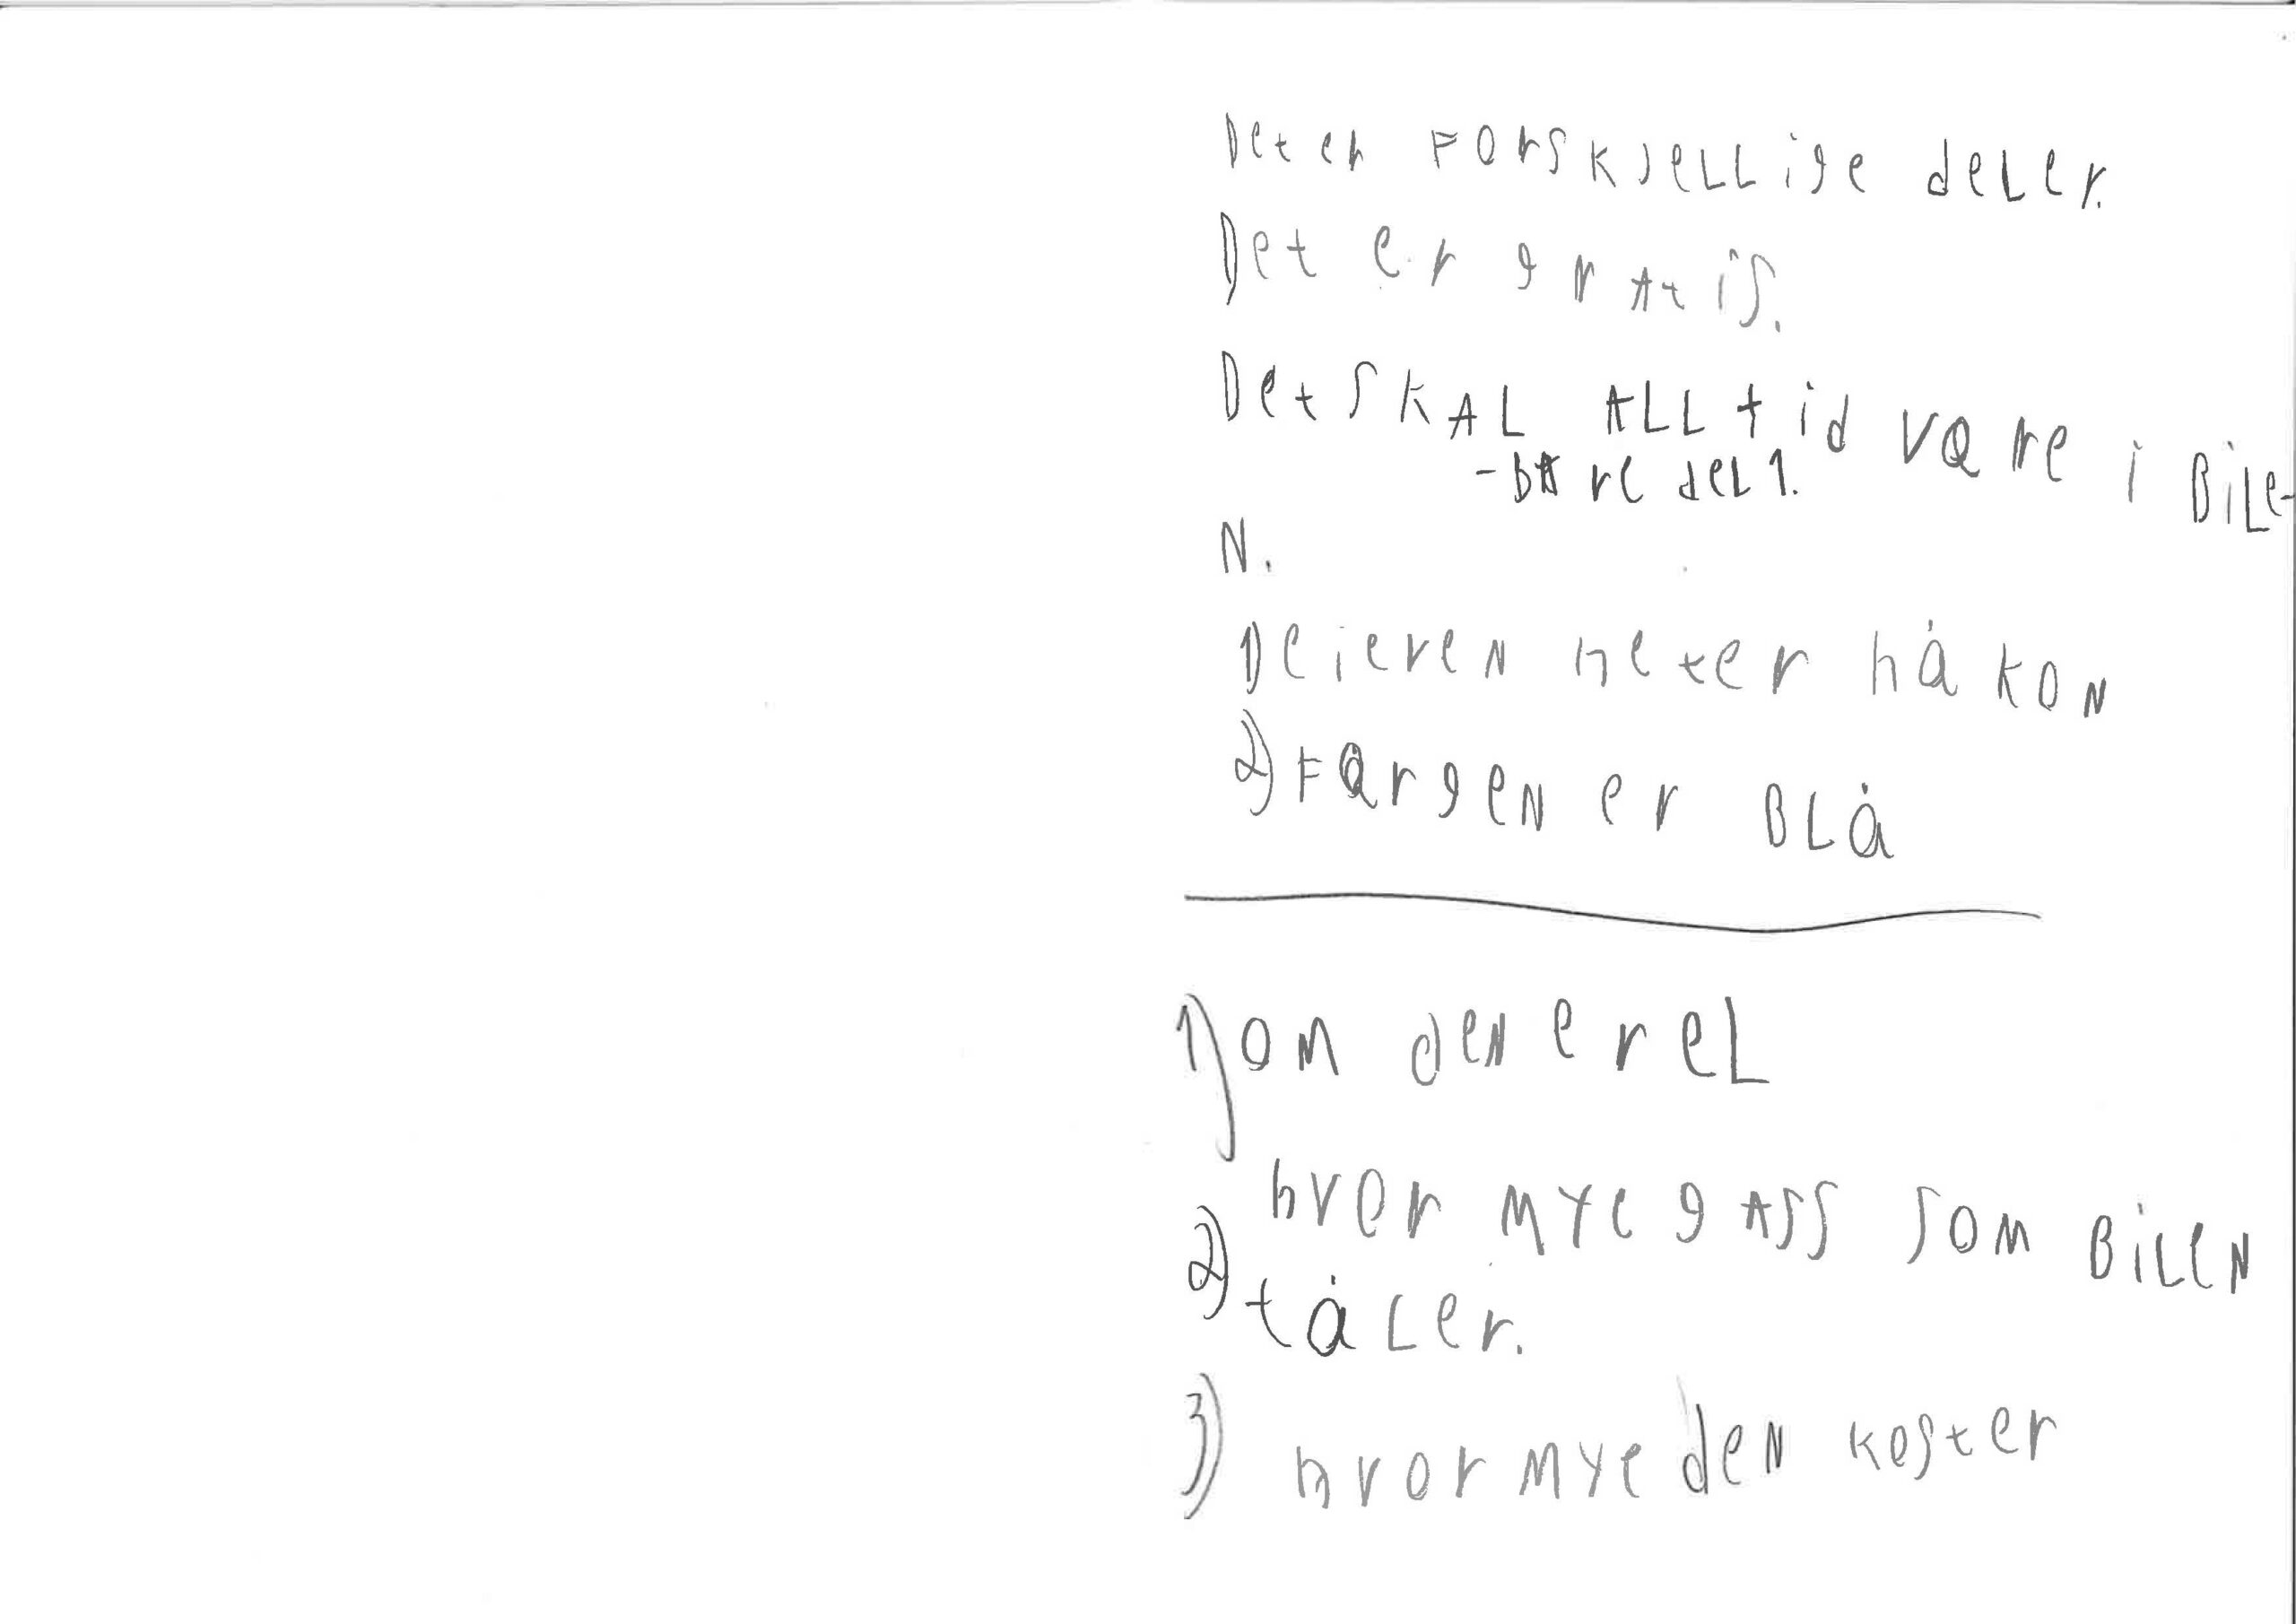 Det er FOrSKjeLLige deLer.
Det er grAtiS.
Det SKAL ALLtid være i BiLe-
-bAre deL 1.
N.
1) eiereN heter håkoN
2) FArgeN er BLå
1) OM deN er eL
hvor Mye gASS SOM BiLeN
2) tåLer.
3) hvor Mye deN koster